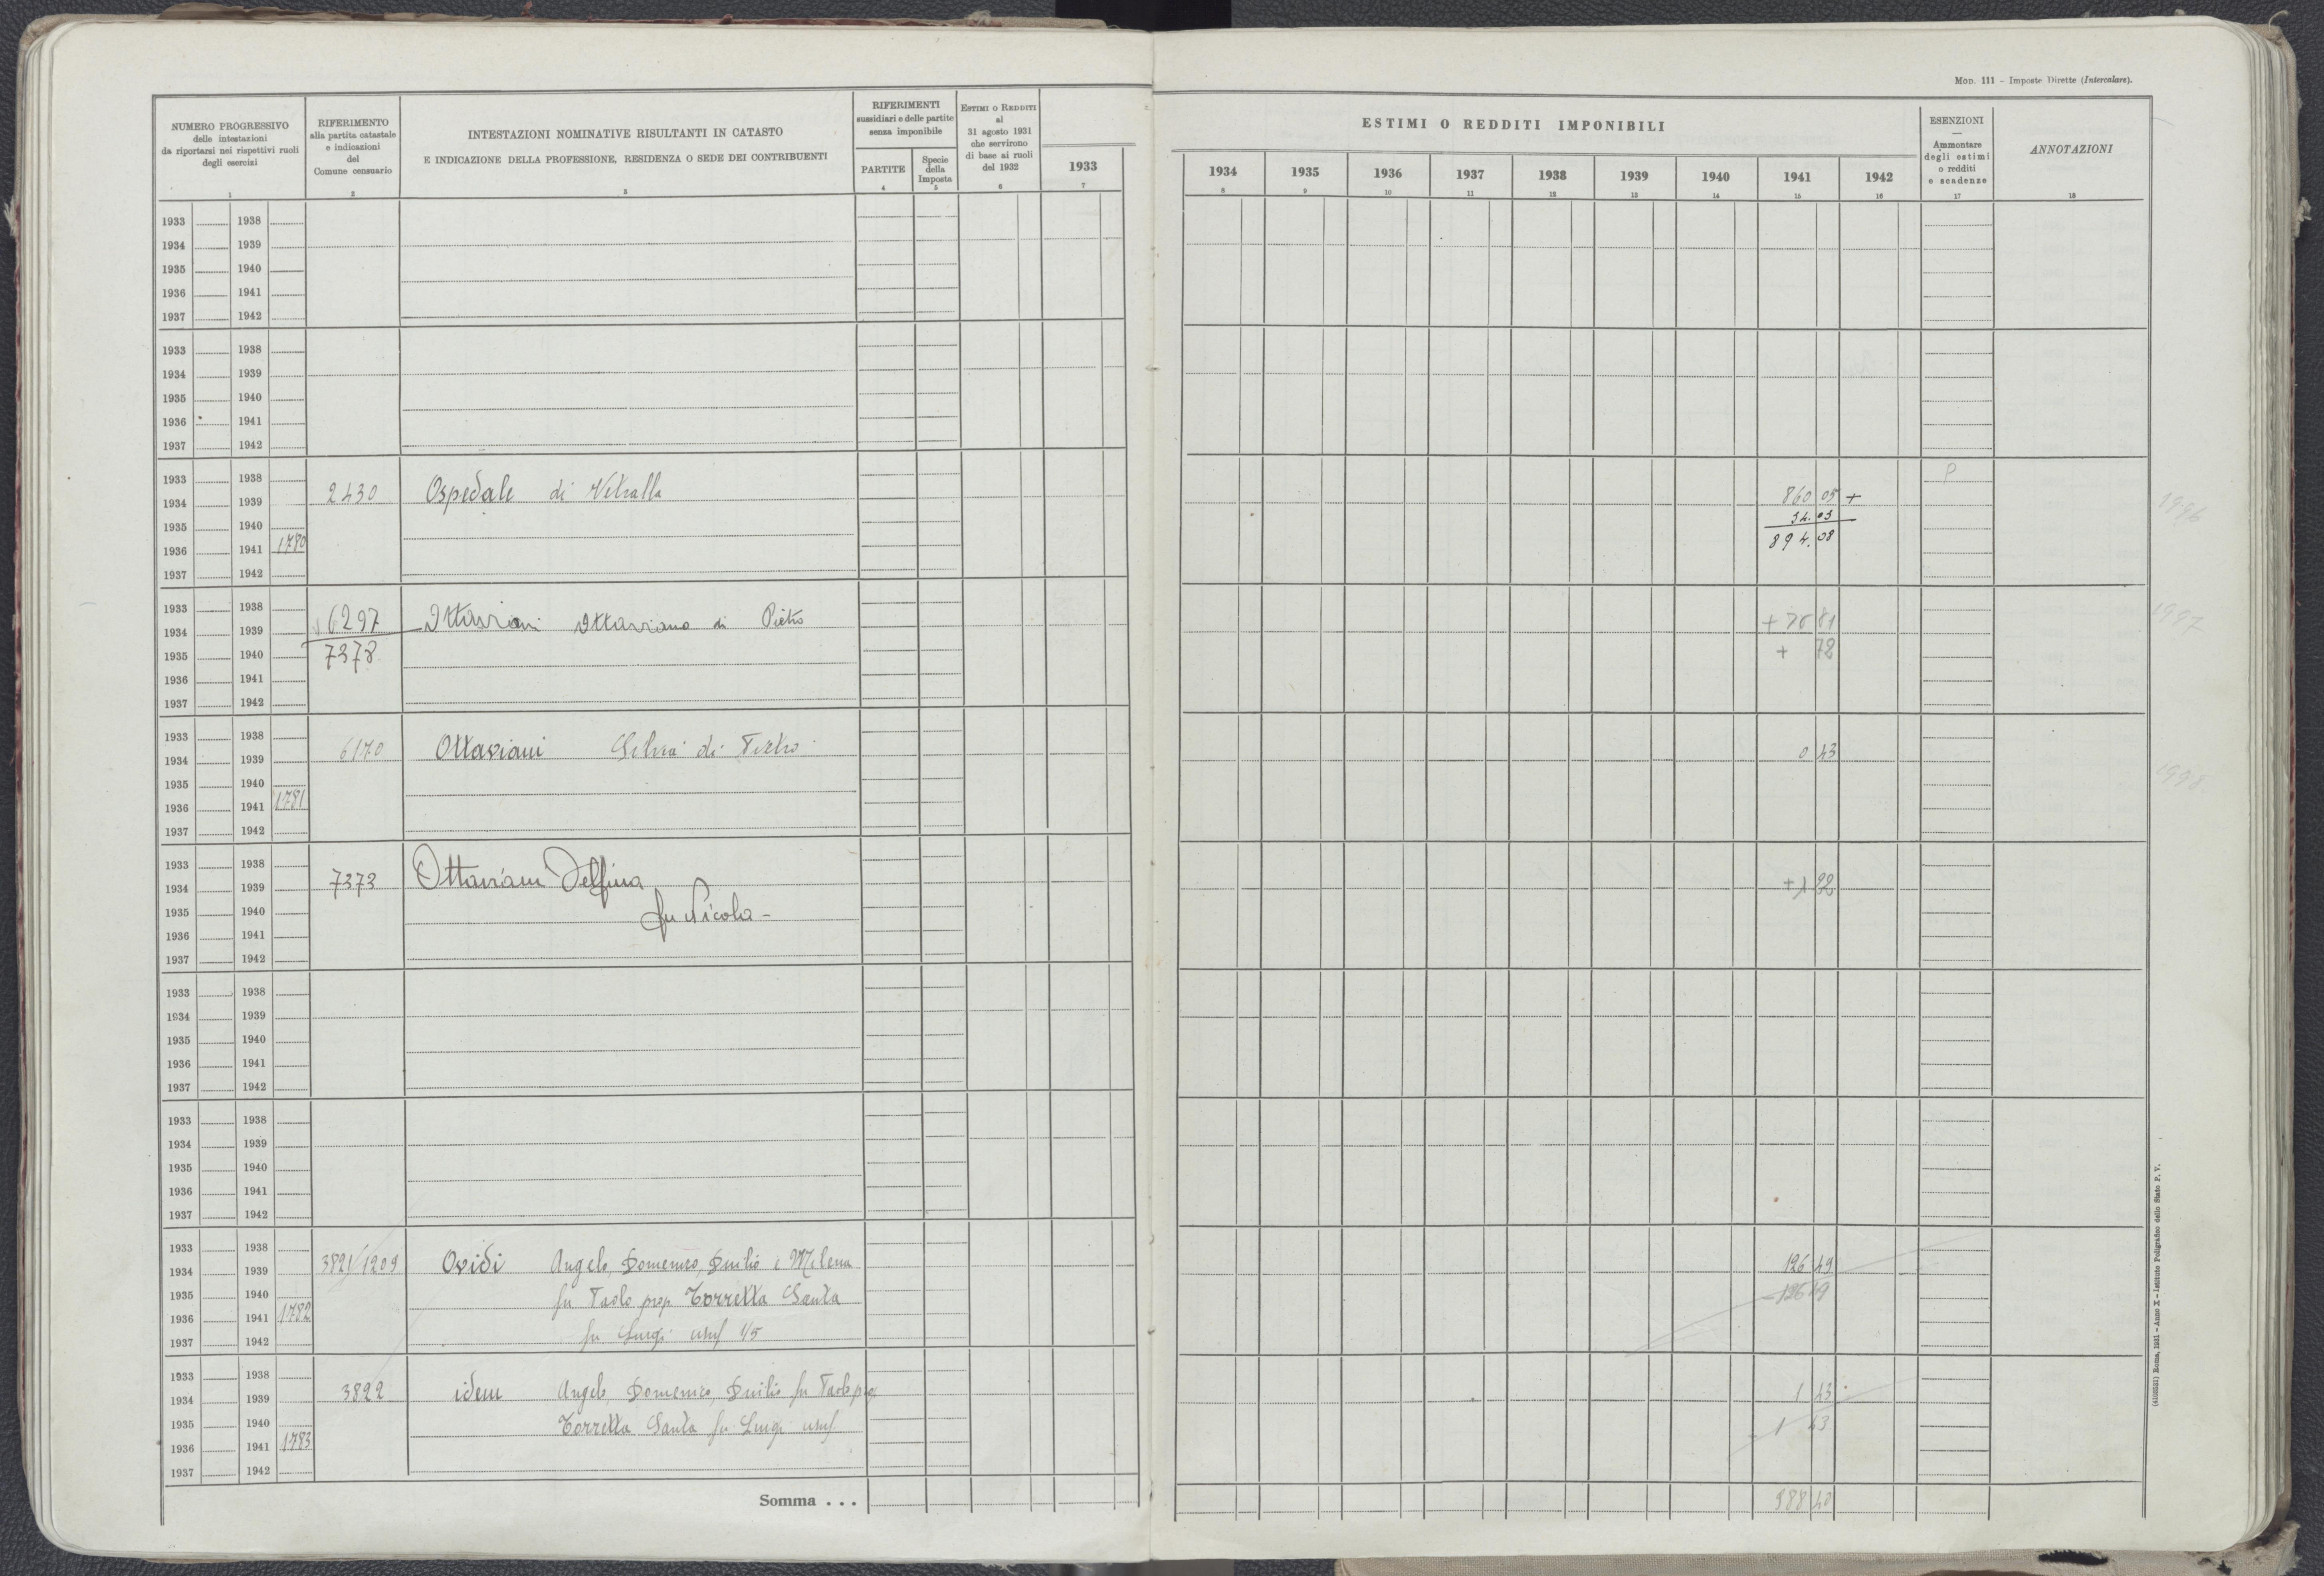 MOD. 111 - Imposte Dirette (Intercalare).
NUMERO PROGRESSIVO
delle intestazioni
da riportarsi nei rispettivi ruoli
degli esercizi
1
RIFERIMENTO
alla partita catastale
e indicazioni
del
Comune censuario
2
INTESTAZIONI NOMINATIVE RISULTANTI IN CATASTO
E INDICAZIONE DELLA PROFESSIONE, RESIDENZA O SEDE DEI CONTRIBUENTI
3
RIFERIMENTI
sussidiari e delle partite
senza imponibile
PARTITE
4
Specie
della
Imposta
5
ESTIMI O REDDITI
al
31 agosto 1931
che servirono
di base ai ruoli
del 1932
6
1933
7
ESTIMI O REDDITI IMPONIBILI
1934 1935 1936 1937 1938 1939 1940 1941 1942
8 9 10 11 12 13 14 15 16
ESENZIONI
—
Ammontare
degli estimi
o redditi
e scadenze
17
ANNOTAZIONI
18
1933 1938
1934 1939
1935 1940
1936 1941
1937 1942
1933 1938
1934 1939
1935 1940
1936 1941
1937 1942
1933 1938 P
1934 1939 2430 Ospedale di Vetralla 860 05 +
1935 1940 34.03
1936 1941 1780 894.08
1937 1942
1996
1933 1938
1934 1939 6297 Ottaviani Ottaviano di Pietro 81
1935 1940 7378 + 72
1936 1941
1937 1942
1997
1933 1938
1934 1939 6170 Ottaviani di Pietro 0 43
1935 1940
1936 1941 1781
1937 1942
1998
1933 1938
1934 1939 7373 Ottaviani Delfina +1 22
1935 1940 fu Nicola -
1936 1941
1937 1942
1933 1938
1934 1939
1935 1940
1936 1941
1937 1942
1933 1938
1934 1939
1935 1940
1936 1941
1937 1942
1933 1938
1934 1939 3821/1209 Ovidi Angelo, Domenico, Duilio e Milena 126 49
1935 1940 fu Paolo prop Torretta Santa - 126 49
1936 1941 1782
1937 1942 fu Luigi usuf 1/5
1933 1938
1934 1939 3822 idem Angelo, Domenico, Duilio fu Paolo prop 1 43
1935 1940 Torretta Santa fu Luigi usuf - 1 43
1936 1941 1783
1937 1942
Somma . . . 988 40
(4103531) Roma, 1931 - Anno X - Istituto Poligrafico dello Stato P. V.